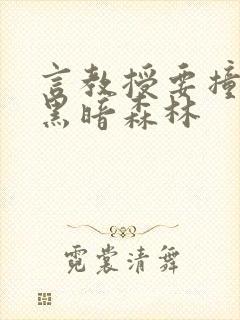 言教授要撞
黑暗森林
霓裳清舞